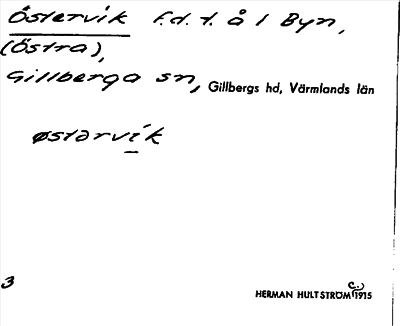 Östervik f.d. t. å 1 Byn,
(Östra),
Gillberga sn, Gillbergs hd, Värmlands län
østərvik
3
HERMAN HULTSTRÖM (c.) 1915